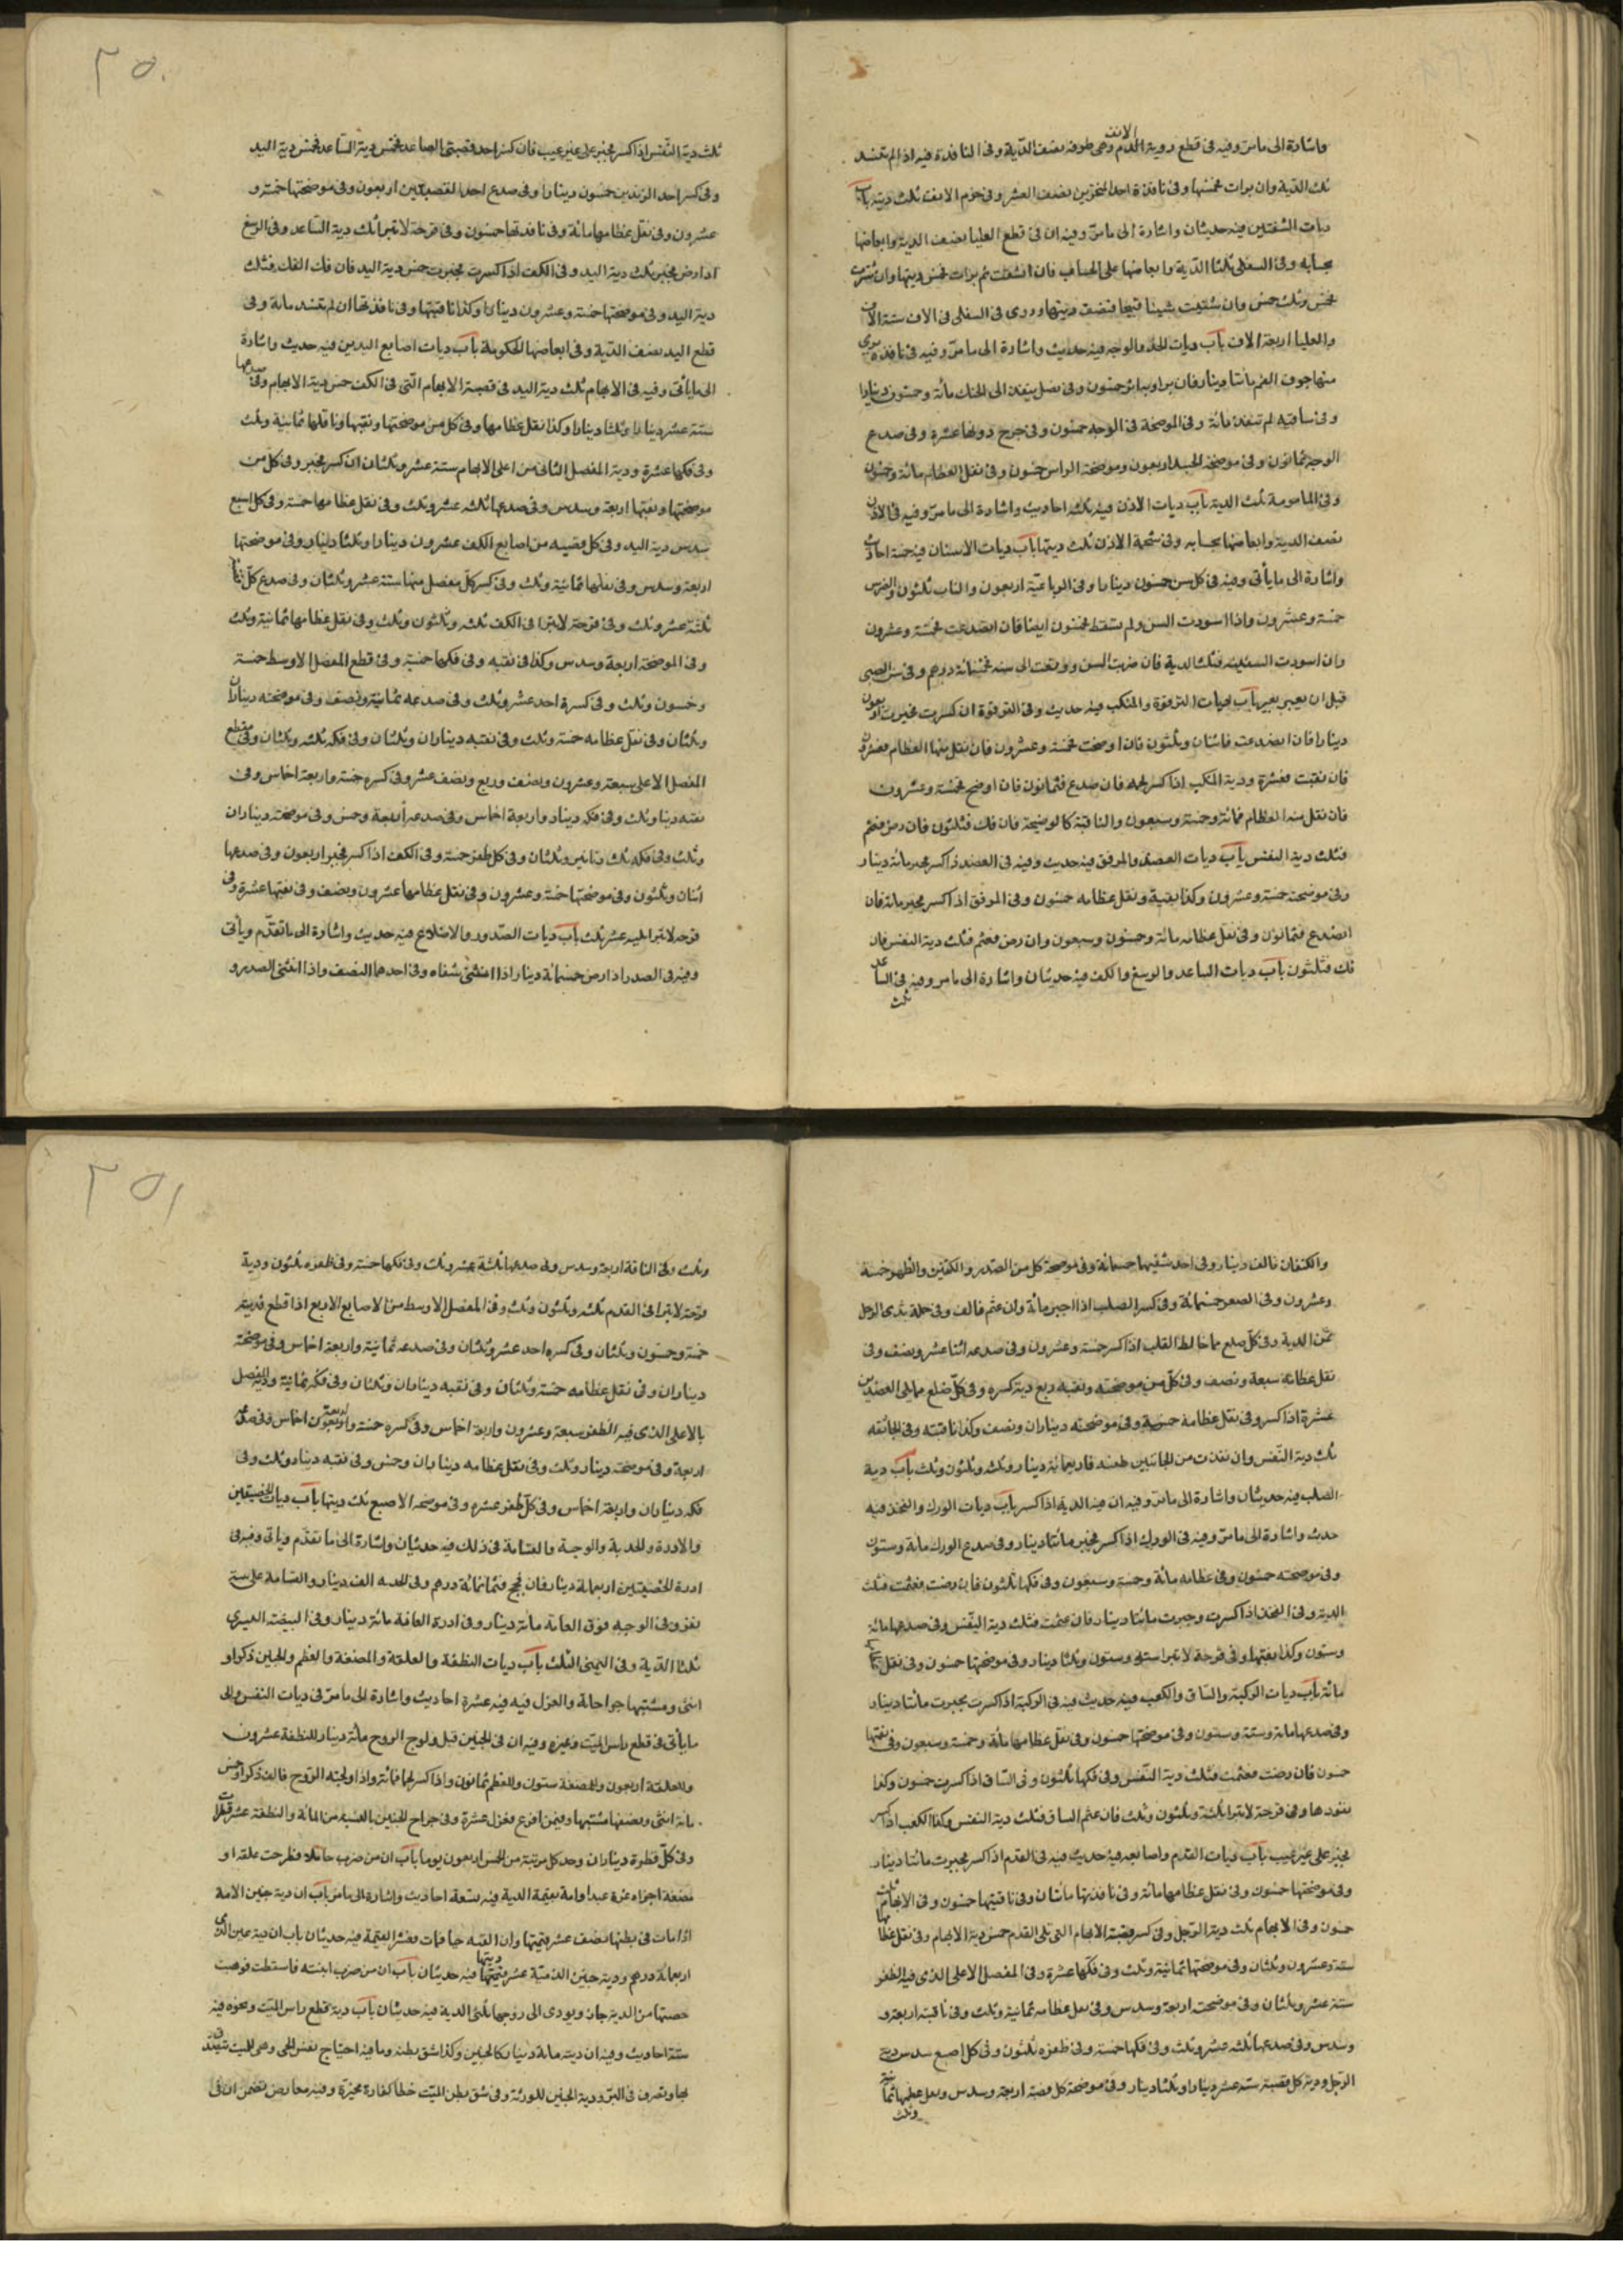 واشارة الى ما مرّ وفيه فى قطع روبة الانف وهى طرفه نصف الدّية وفى النافذة فيه اذا لم تنسد
ثلث الدّية وان برات فخمسها وفى نافذة احد المنخرين نصف العشر وفى خرم الانف ثلث ديته باب
ديات الشفتين فيه حديثان واشارة الى ما مرّ وفيه ان فى قطع العليا نصف الدية وابعاضها
بحسابه وفى السفلى ثلثا الدّية وابعاضها على الحساب فان انشقت ثم برات فخمس ديتها وان شترت
فخمس وثلث خمس وان شينت شينا قبيحا فنصف ديتها وروى فى السفلى فى الاف ستة الاف
والعليا اربعة الاف باب ديات الخد والوجه فيه حديث واشارة الى ما مرّ وفيه فى نافذة يرى
منها جوف الفم مائتا دينار فان برا وبه اثر خمسون وفى نصل ينفذ الى الحنك مائة وخمسون دينارا
وفى ساقيه لم تنفذ مائة وفى الموضحة فى الوجه خمسون وفى جرح دونها عشرة وفى صدع
الوجه ثمانون وفى موضحة الجسد اربعون وموضحة الراس خمسون وفى نقل العظام مائة وخمسون
وفى المامومة ثلث الدية باب ديات الاذن فيه ثلثه احاديث واشارة الى ما مرّ وفيه فى الاذن
نصف الدية وابعاضها بحسابه وفى شحمة الاذن ثلث ديتها باب ديات الاسنان فيه خمسة احاديث
واشارة الى ما يأتى وفيه فى كل سن خمسون دينارا وفى الرباعيّة اربعون والناب ثلثون والضرس
خمسة وعشرون واذا اسودت السن ولم تسقط فخمسون ايضا فان انصدعت فخمسة وعشرون
وان اسودت السفلية فثلث الدية فان ضربت السن ووقعت الى سنه فخمسمائة درهم وفى سن الصبى
قبل ان يعبر بعير باب ديات الترقوة والمنكب فيه حديث وفى الترقوة ان كسرت فجبرت اربعون
دينارا فان انصدعت فاثنان وثلثون فان اوضحت فخمسة وعشرون فان نقل منها العظام فعشرون
فان نقبت فعشرة ودية المنكب اذا كسر فان صدع فثمانون فان اوضح فخمسة وعشرون
فان نقل منه العظام فمائة وخمسة وسبعون والناقبة كالموضحة فان فك فثلثون فان رض فعثم
فثلث دية النفس باب ديات العضد والمرفق فيه حديث وفيه فى العضد اذا كسر فجبر مائة دينار
وفى موضحته خمسة وعشرون وكذا نقبه ونقل عظامه خمسون وفى المرفق اذا كسر فجبر مائة فان
انصدع فثمانون وفى نقل عظامه مائة وخمسون وسبعون وان رض فعثم فثلث دية النفس فان
فك فثلثون باب ديات الساعد والرسغ والكف فيه حديثان واشارة الى ما مر وفيه فى الساعد
ثلث
٢٥٠
ثلث دية النّفس اذا كسر فجبر على غير عيب فان كسر احد قصبتى الصاعد فخمس دية السّاعد فخمس دية اليد
وفى كسر احد الزندين خمسون دينارا وفى صدع احد القصبتين اربعون وفى موضحتها خمسة و
عشرون وفى نقل عظامها مائة وفى نافذتها خمسون وفى قرحة لا تبرا ثلث دية السّاعد وفى الرسغ
اذا رض فجبر ثلث دية اليد وفى الكف اذا كسرت فجبرت خمس دية اليد فان فك الكف فثلث
دية اليد وفى موضحتها خمسة وعشرون دينارا وكذا ناقبتها وفى نافذتها ان لم تنسد مائة وفى
قطع اليد نصف الدّية وفى ابعاضها الحكومة باب ديات اصابع اليدين فيه حديث واشارة
الى ما يأتى وفيه فى الابهام ثلث دية اليد فى قصبة الابهام الّتى فى الكف خمس دية الابهام وفى صدعها
ستة عشر دينارا وثلثا دينارا وكذا نقل عظامها وفى كل من موضحتها ونقبها وناقلها ثمانية وثلث
وفى فكها عشرة ودية المفصل الثانى من اعلى الابهام ستة عشر وثلثان ان كسر فجبر وفى كل من
موضحتها ونقبها اربعة وسدس وفى صدعها ثلثه عشر وثلث وفى نقل عظامها خمسة وفى كل اصبع
سدس دية اليد وفى كل قصبه من اصابع الكف عشرون دينارا وثلثا دينار وفى موضحتها
اربعة وسدس وفى نقلها ثمانية وثلث وفى كسر كلّ مفصل منها ستة عشر وثلثان وفى صدع كلّ منها
ثلثة عشر وثلث وفى قرحة لا تبرا فى الكف ثلثه وثلثون وثلث وفى نقل عظامها ثمانية وثلث
وفى الموضحة اربعة وسدس وكذا فى نقبه وفى فكها خمسة وفى قطع المفصل الاوسط خمسة
وخمسون وثلث وفى كسره احد عشر وثلث وفى صدعه ثمانية ونصف وفى موضحته ديناران
وثلثان وفى نقل عظامه خمسة وثلث وفى نقبه ديناران وثلثان وفى فكه ثلثه وثلثان وفى قطع
المفصل الاعلى سبعة وعشرون ونصف وربع ونصف عشر وفى كسره خمسة واربعة اخماس وفى
نقبه دينار وثلث وفى فكه دينار واربعة اخماس وفى صدعه أربعة وخمس وفى موضحته ديناران
وثلث وفى فكه ثلث دنانير وثلثان وفى كل ظفر خمسة وفى الكف اذا كسر فجبر اربعون وفى صدعها
اثنان وثلثون وفى موضحتها خمسة وعشرون وفى نقل عظامها عشرون ونصف وفى نقبها عشرة وفى
قرحه لا تبرا ثلثه عشر ثلث باب ديات الصّدور والاضلاع فيه حديث واشارة الى ما تقدّم ويأتى
وفيه فى الصدر اذا رض خمسمائة دينار اذا انثنى شفاه وفى احدهما النصف واذا انثنى الصدر و
والكتفان فالف دينار وفى احد شقيهما خمسمائة وفى موضحة كل من الصّدر والكتفين والظهر خمسة
وعشرون وفى الصعر خمسمائة وفى كسر الصلب اذا اجبر مائة وان عثم فالف وفى حلمة ثدى الرجل
ثمن الدية وفى كلّ ضلع مما خالط القلب اذا كسر خمسة وعشرون وفى صدعه اثنا عشر ونصف وفى
نقل عظامه سبعة ونصف وفى كلّ من موضحته ونقبه ربع دية كسره وفى كلّ ضلع مما يلى العضدين
عشرة اذا كسر وفى نقل عظامه خمسة وفى موضحته ديناران ونصف وكذا ناقبته وفى الجائفه
ثلث دية النّفس وان نفذت من الجانبين طعنه فاربعمائة دينار وثلثه وثلثون وثلث باب دية
الصلب فيه حديثان واشارة الى ما مرّ وفيه ان فيه الدية اذا كسر باب ديات الورك والفخذ فيه
حديث واشارة الى ما مرّ وفيه فى الورك اذا كسر فجبر مائتا دينار وفى صدع الورك مائة وستون
وفى موضحته خمسون وفى عظامه مائة وخمسة وسبعون وفى فكها ثلثون فان رضت فعثمت فثلث
الدية وفى الفخذ اذا كسرت وجبرت مائتا دينار فان عثمت فثلث دية النّفس وفى صدعها مائة
وستون وكذا نقبها وفى قرحة لا تبرا ستة وستون وثلثا دينار وفى موضحتها خمسون وفى نقل عظامها
مائة باب ديات الركبة والسّاق والكعب فيه حديث فيه فى الركبة اذا كسرت فجبرت مائتا دينار
وفى صدعها مائة وستة وستون وفى موضحتها خمسون وفى نقل عظامها مائة وخمسة وسبعون وفى نقبها
خمسون فان رضت فعثمت فثلث دية النّفس وفى فكها ثلثون وفى السّاق اذا كسرت خمسون وكذا
نفوذها وفى قرحة لا تبرا ثلثة وثلثون وثلث فان عثم الساق فثلث دية النفس وكذا الكعب اذا كسر
فجبر على غير عيب باب ديات القدم واصابعه فيه حديث فيه فى القدم اذا كسر فجبرت مائتا دينار
وفى موضحتها خمسون وفى نقل عظامها مائة وفى نافذتها مائتان وفى ناقبتها خمسون وفى الابهام ثلث
خمسون وفى الابهام ثلث دية الرّجل وفى كسر قصبة الابهام التى تلى القدم خمس دية الابهام وفى نقل عظامها
ستة وعشرون وثلثان وفى موضحتها ثمانية وثلث وفى فكّها عشرة وفى المفصل الاعلى الذى فيه الظفر
ستة عشر وثلثان وفى موضحته اربعة وسدس وفى نقل عظامه ثمانية وثلث وفى ناقبته اربعة و
وسدس وفى صدعها ثلثه عشر وثلث وفى فكها خمسة وفى ظفره ثلثون وفى كل اصبع سدس دية
الرّجل ودية كل قصبة ستة عشر دينارا وثلثا دينار وفى موضحة كل قصبة اربعة وسدس ونقل عظمها ثمانية
وثلث
٢٥١
وثلث وفى الناقبة اربعة وسدس وفى صدعها ثلثة عشر وثلث وفى فكها خمسة وفى ظفره ثلثون ودية
قرحة لا تبرا فى القدم ثلثه وثلثون وثلث وفى المفصل الاوسط من الاصابع الاربع اذا قطع فديته
خمسة وخمسون وثلثان وفى كسره احد عشر وثلثان وفى صدعه ثمانية واربعة اخماس وفى موضحته
ديناران وفى نقل عظامه خمسة وثلثان وفى نقبه ديناران وثلثان وفى فكّه ثمانية ودية المفصل
بالاعلى الذى فيه الظفر سبعة وعشرون واربعة اخماس وفى كسره خمسة واربعة اخماس وفى صدعه
اربعة وفى موضحته دينار وثلث وفى نقل عظامه ديناران وخمس وفى نقبه دينار وثلث وفى
فكه ديناران واربعة اخماس وفى كلّ ظفر عشره وفى موضحه الاصبع ثلث ديتها باب ديات الخصيتين
والادرة والحدبة والوجبة والقسامة فى ذلك فيه حديثان واشارة الى ما تقدّم وياتى وفيه فى
ادرة الخصيتين اربعمائة دينار فان فحج فثمانمائة درهم وفى الحدبه الف دينار والقسامة على ستة
نفر وفى الوجبه فوق العانة مائة دينار وفى ادرة العانة مائة دينار وفى البيضة اليسرى
ثلثا الدّية وفى اليمنى الثّلث باب ديات النطفة والعلقة والمضغة والعظم والجنين ذكرا و
انثى ومشتبها جراحاته والعزل فيه فيه عشرة احاديث واشارة الى ما مرّ فى ديات النّفس والى
ما يأتى فى قطع راس الميّت وغيره وفيه ان فى الجنين قبل ولوج الروح مائة دينار للنطفة عشرون
وللعلقة اربعون وللمضغة ستون وللعظم ثمانون واذا كسى لحما فمائة واذا ولجته الرّوح فالف ذكرا وخمس
مائة انثى ونصفها مشتبها وفيمن افزع فعزل عشرة وفى جراح الجنين بالنسبة من المائة والنطفة عشر قطرات
وفى كلّ قطرة ديناران وحد كل مرتبة من الخمس اربعون يوما باب ان من ضرب حاملا فطرحت علقة او
مضغة اجزاه غرة عبدا وامة بقيمة الدية فيه سبعة احاديث واشارة الى ما مر باب ان دية جنين الامة
اذا مات فى بطنها نصف عشر قيمتها وان القته حيا فمات فعشر القيمة فيه حديثان باب ان دية عين الذمى
اربعمائة درهم ودية جنين الذميّة عشر ديتها فيه حديثان باب ان من ضرب ابنته فاسقطت فوهبت
حصتها من الدية جاز ويودى الى زوجها ثلثى الدية فيه حديثان باب دية قطع راس الميّت ونحوه فيه
ستة احاديث وفيه ان ديته مائة دينار كالجنين وكذا شق بطنه وما فيه اجتياح نفس الحى وهى للميت تتصدق
بها وتصرف فى البرّ ودية الجنين للورثة وفى شق بطن الميّت خطأ كفارة مخيّرة وفيه معارض تضمن ان فى